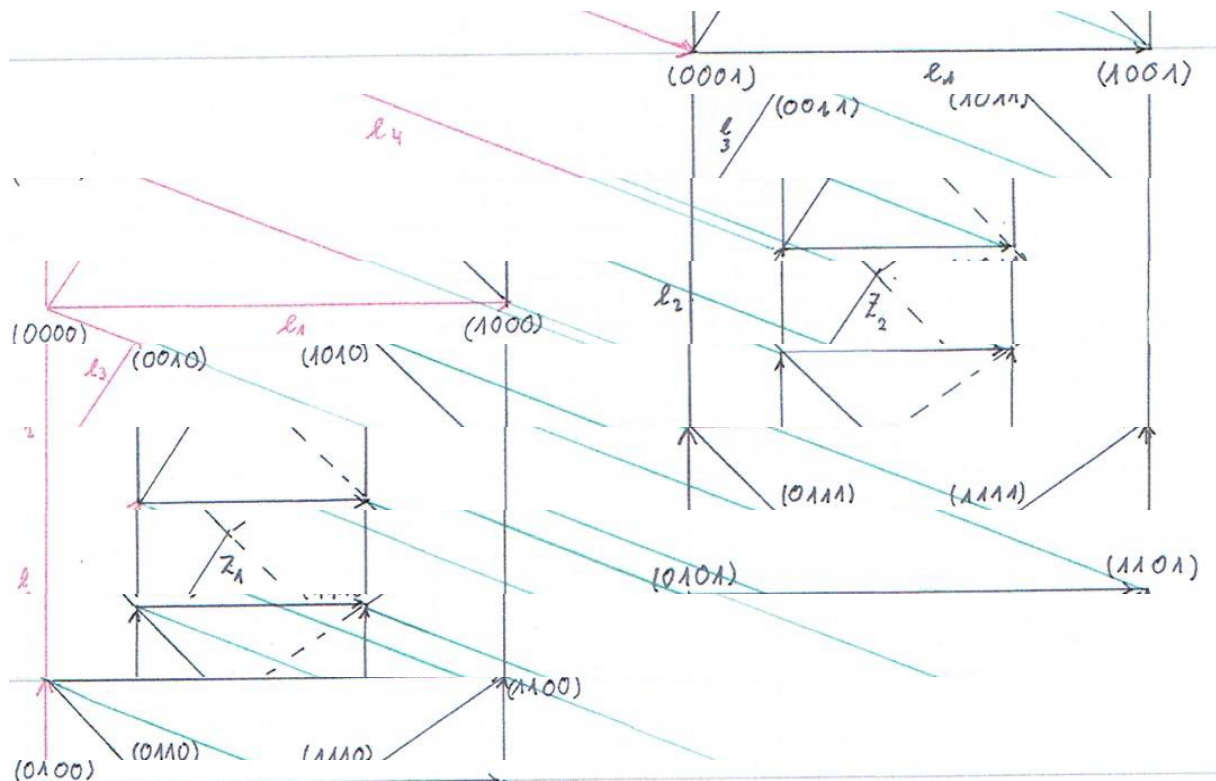 (0001) l1 (1001)
l4 l3 (0011) (1011)
l2 Z2
(0000) l1 (1000)
l3 (0010) (1010)
(0111) (1111)
Z1 (0101) (1101)
(1100)
(0110) (1110)
(0100)